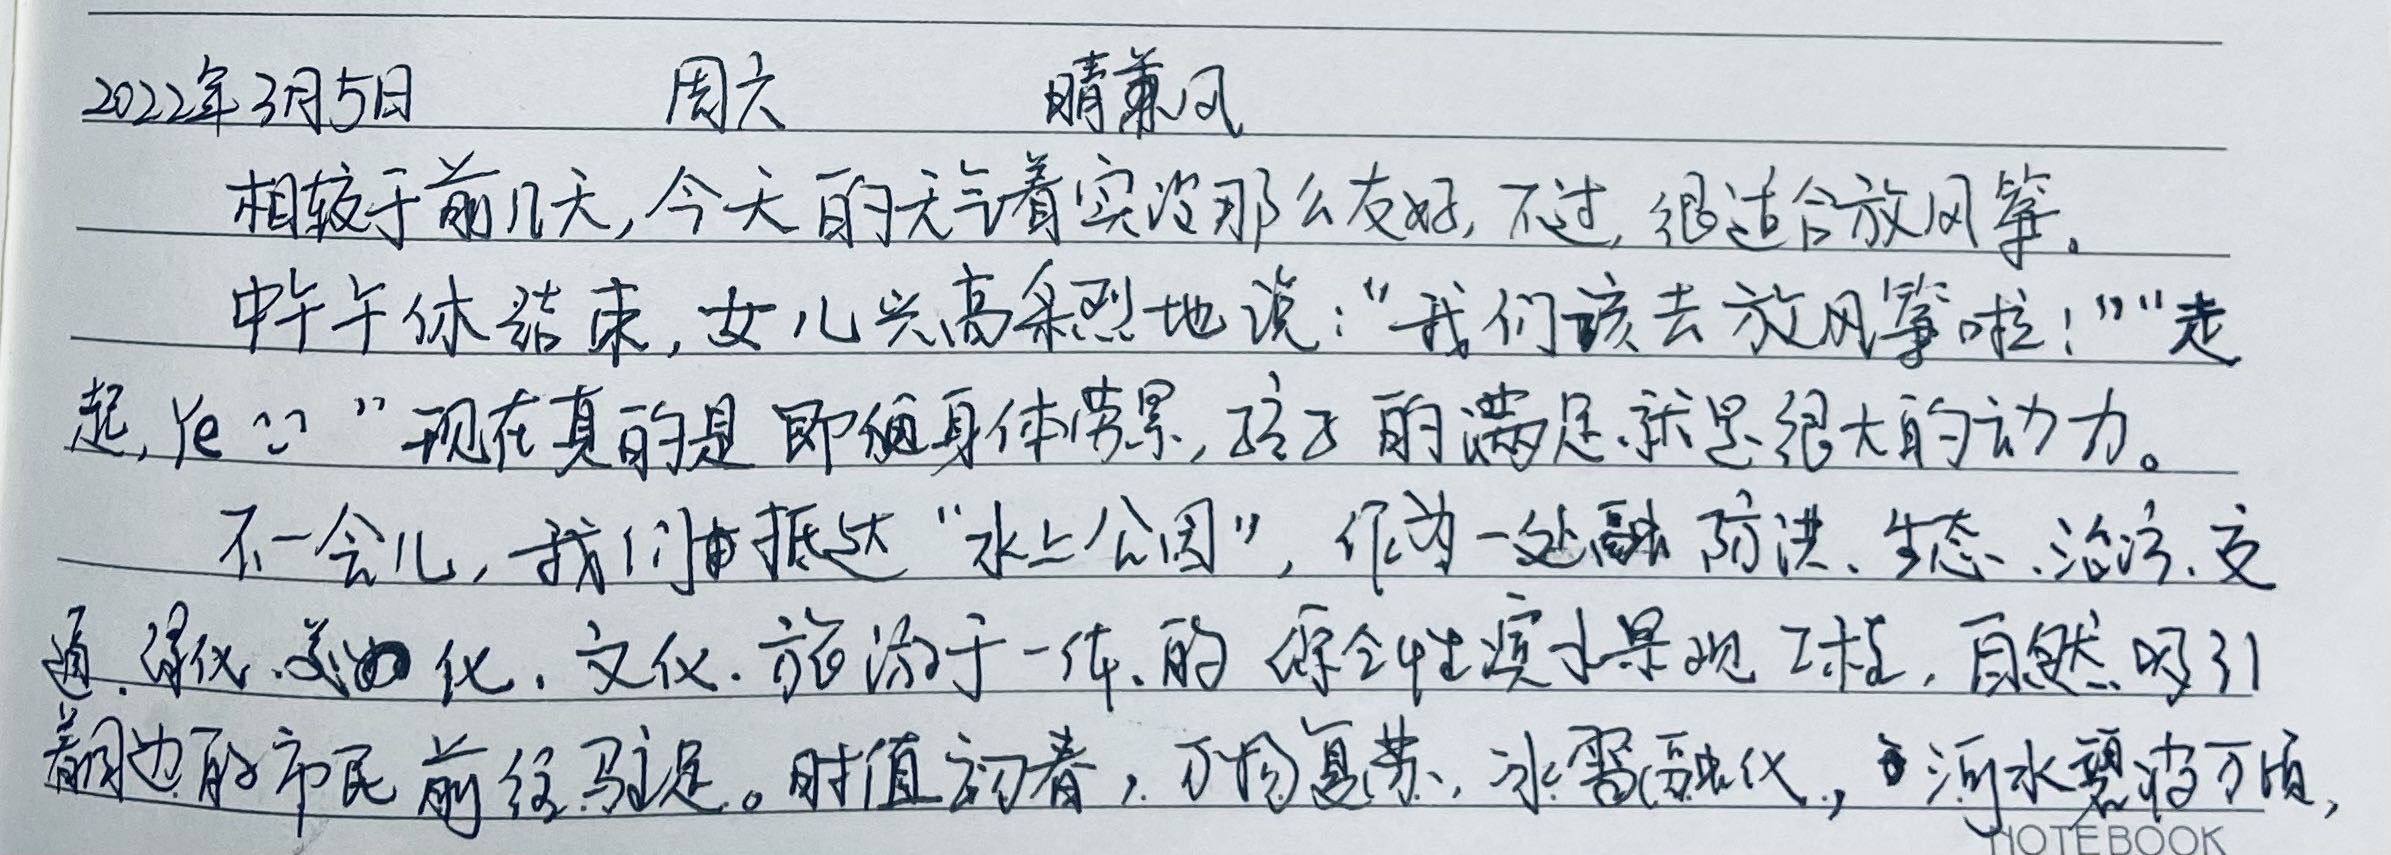 2022年3月5日 周六 晴兼风
相较于前几天,今天的天气着实没那么友好,不过,很适合放风筝。
中午午休结束,女儿兴高采烈地说:“我们该去放风筝啦!”“走
起,Ye ”现在真的是即便身体劳累,孩子的满足就是很大的动力。
不一会儿,我们抵达“水上公园”,作为一处融防洪、生态、治污、交
通、绿化、美化、文化、旅游于一体的综合性滨水景观工程,自然吸引
着周边的市民前往驻足。时值初春,万物复苏、冰雪融化,河水碧波万顷,
NOTEBOOK